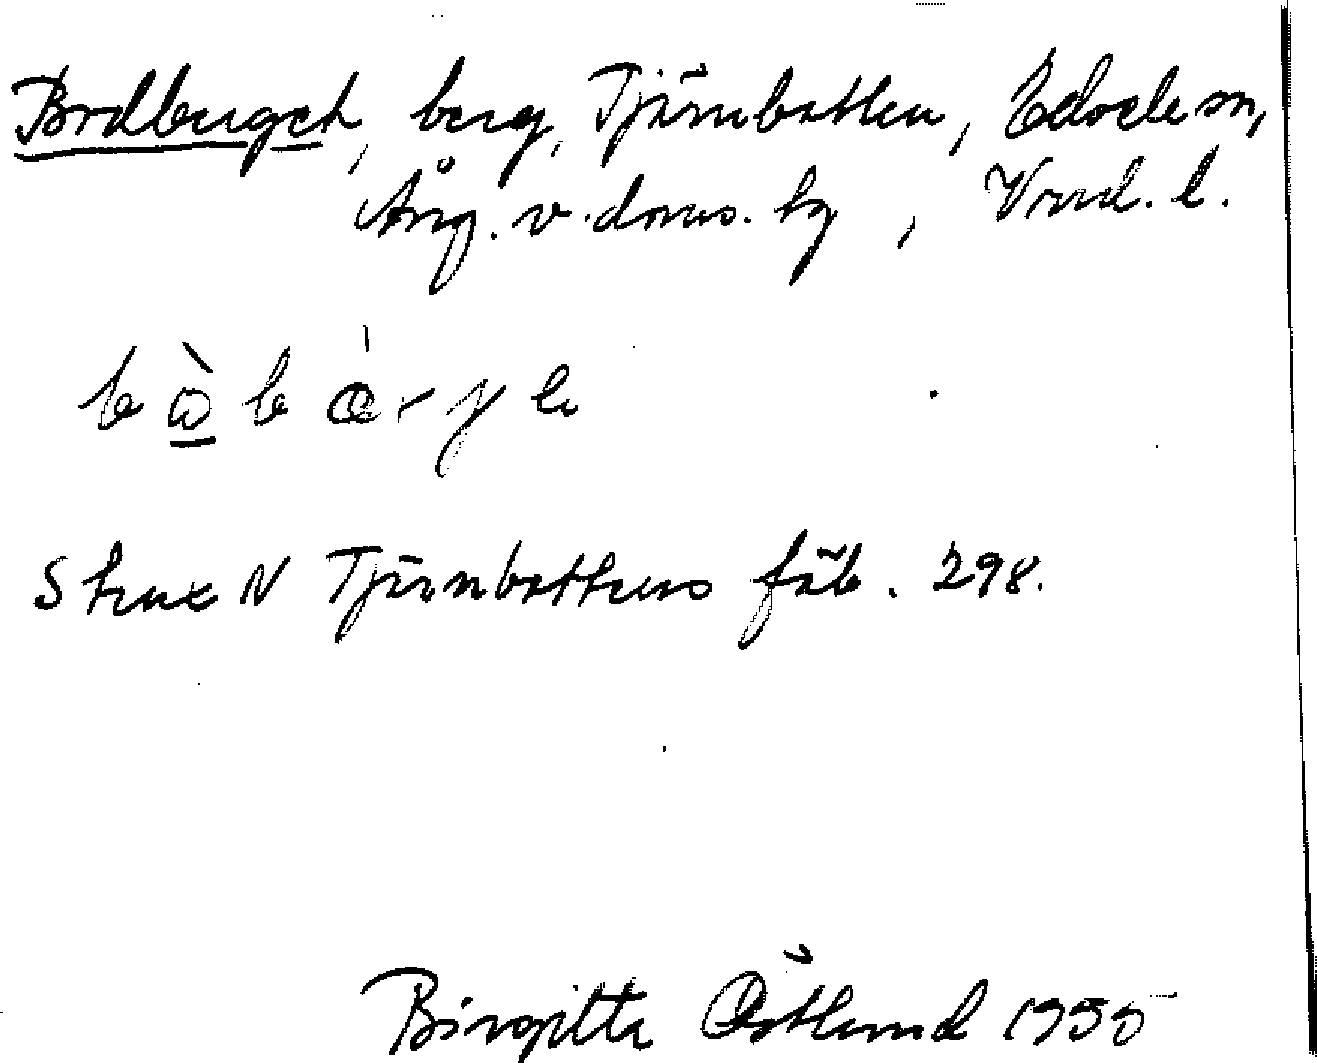 Bodberget, berg, Tjärnbotten, Edsele sn,
Ång. v. doms. tg, Vnrl. l.
Strax N Tjärnbottens fäb. 298.
Birgitta Östlund 1955